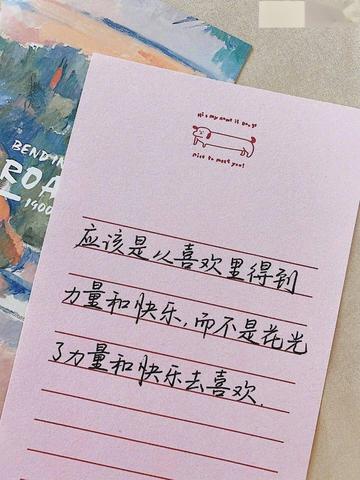 BENDIN
ROA
1900
Hi~ my name is Dougo
nice to meet you!
应该是从喜欢里得到
力量和快乐,而不是花光
了力量和快乐去喜欢.